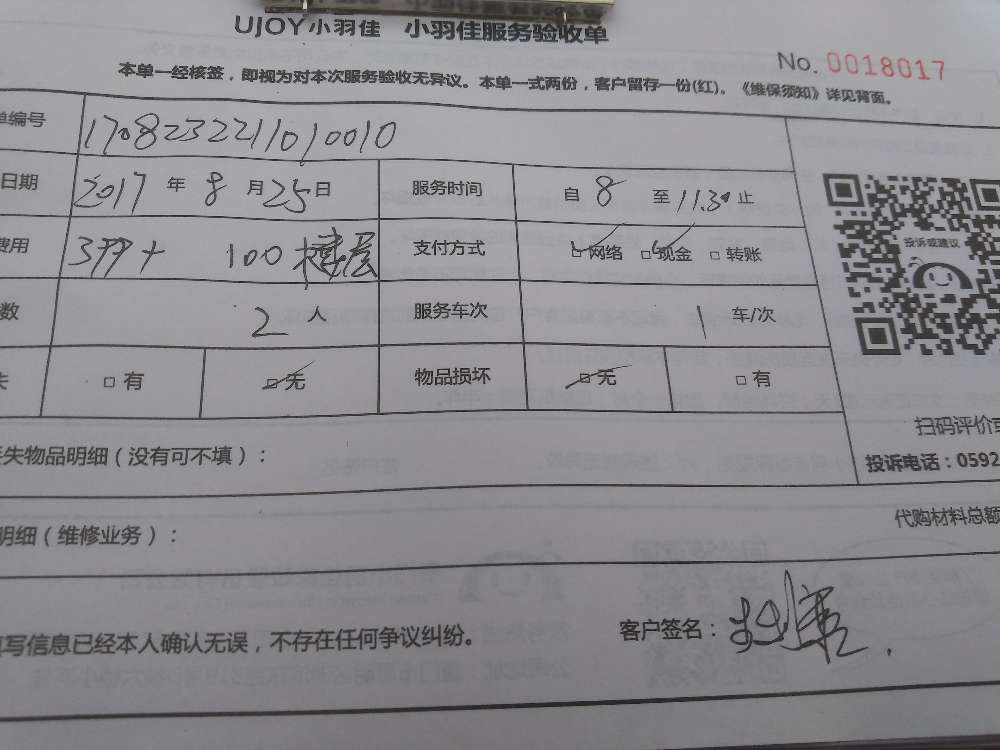 UJOY小羽佳 小羽佳服务验收单
No. 0018017
本单一经核签，即视为对本次服务验收无异议。本单一式两份，客户留存一份(红)。《维保须知》详见背面。
单编号 1708232211010010
日期 2017 年 8 月 25 日 服务时间 自 8 至 11.30 止
费用 399+ 100楼层 支付方式 □网络 □现金 □转账
数 2 人 服务车次 1 车/次
失 □有 □无 物品损坏 □无 □有
投诉或建议
扫码评价或
丢失物品明细（没有可不填）： 投诉电话：0592
明细（维修业务）： 代购材料总额
填写信息已经本人确认无误，不存在任何争议纠纷。 客户签名：